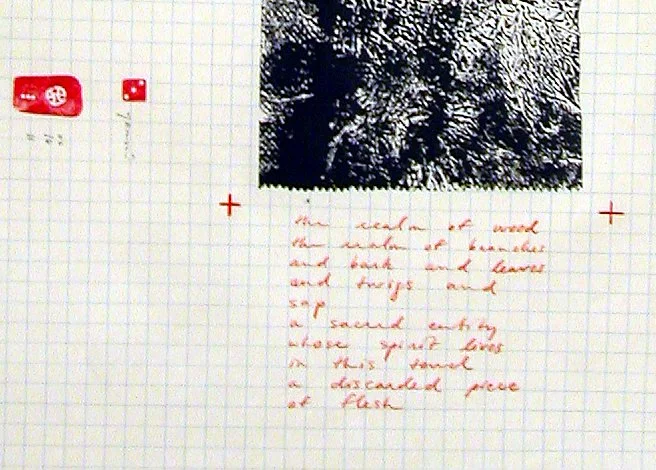 the realm of wood
the realm of branches
and bark and leaves
and twigs and
sap
a sacred entity
whose spirit lives
in this towel
a discarded piece
of flesh